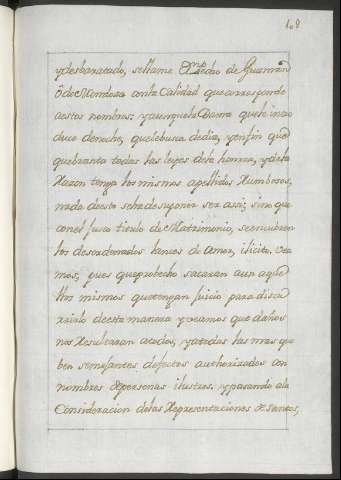 ydesbaratado, sellame Dn. Pedro de Guzman
ò de Mendoza conla Calidad que corresponde
aestos nombres: yaunque la Dama que le intro
duce derecho, que lebusca dedia, yenfin que
quebranta todas las leyes dela honra, ydela
Razon tenga los mismos apellidos Rumbosos,
nada deesto seha de suponer ser assi; sino que
conel justo titulo de Matrimonio, se encubren
los desordenados lances de Amor, ilicito. Vea
mos, pues que probecho sacaran aun aque
llos mismos que tengan juicio para discu
rrirlo deesta manera y veamos que daños
nos Resultaran atodos, y atodas las mas que
ben semejantes defectos authorizados con
nombres de personas ilustres. ypasando ala
Consideracion delas Representaciones de Santos,